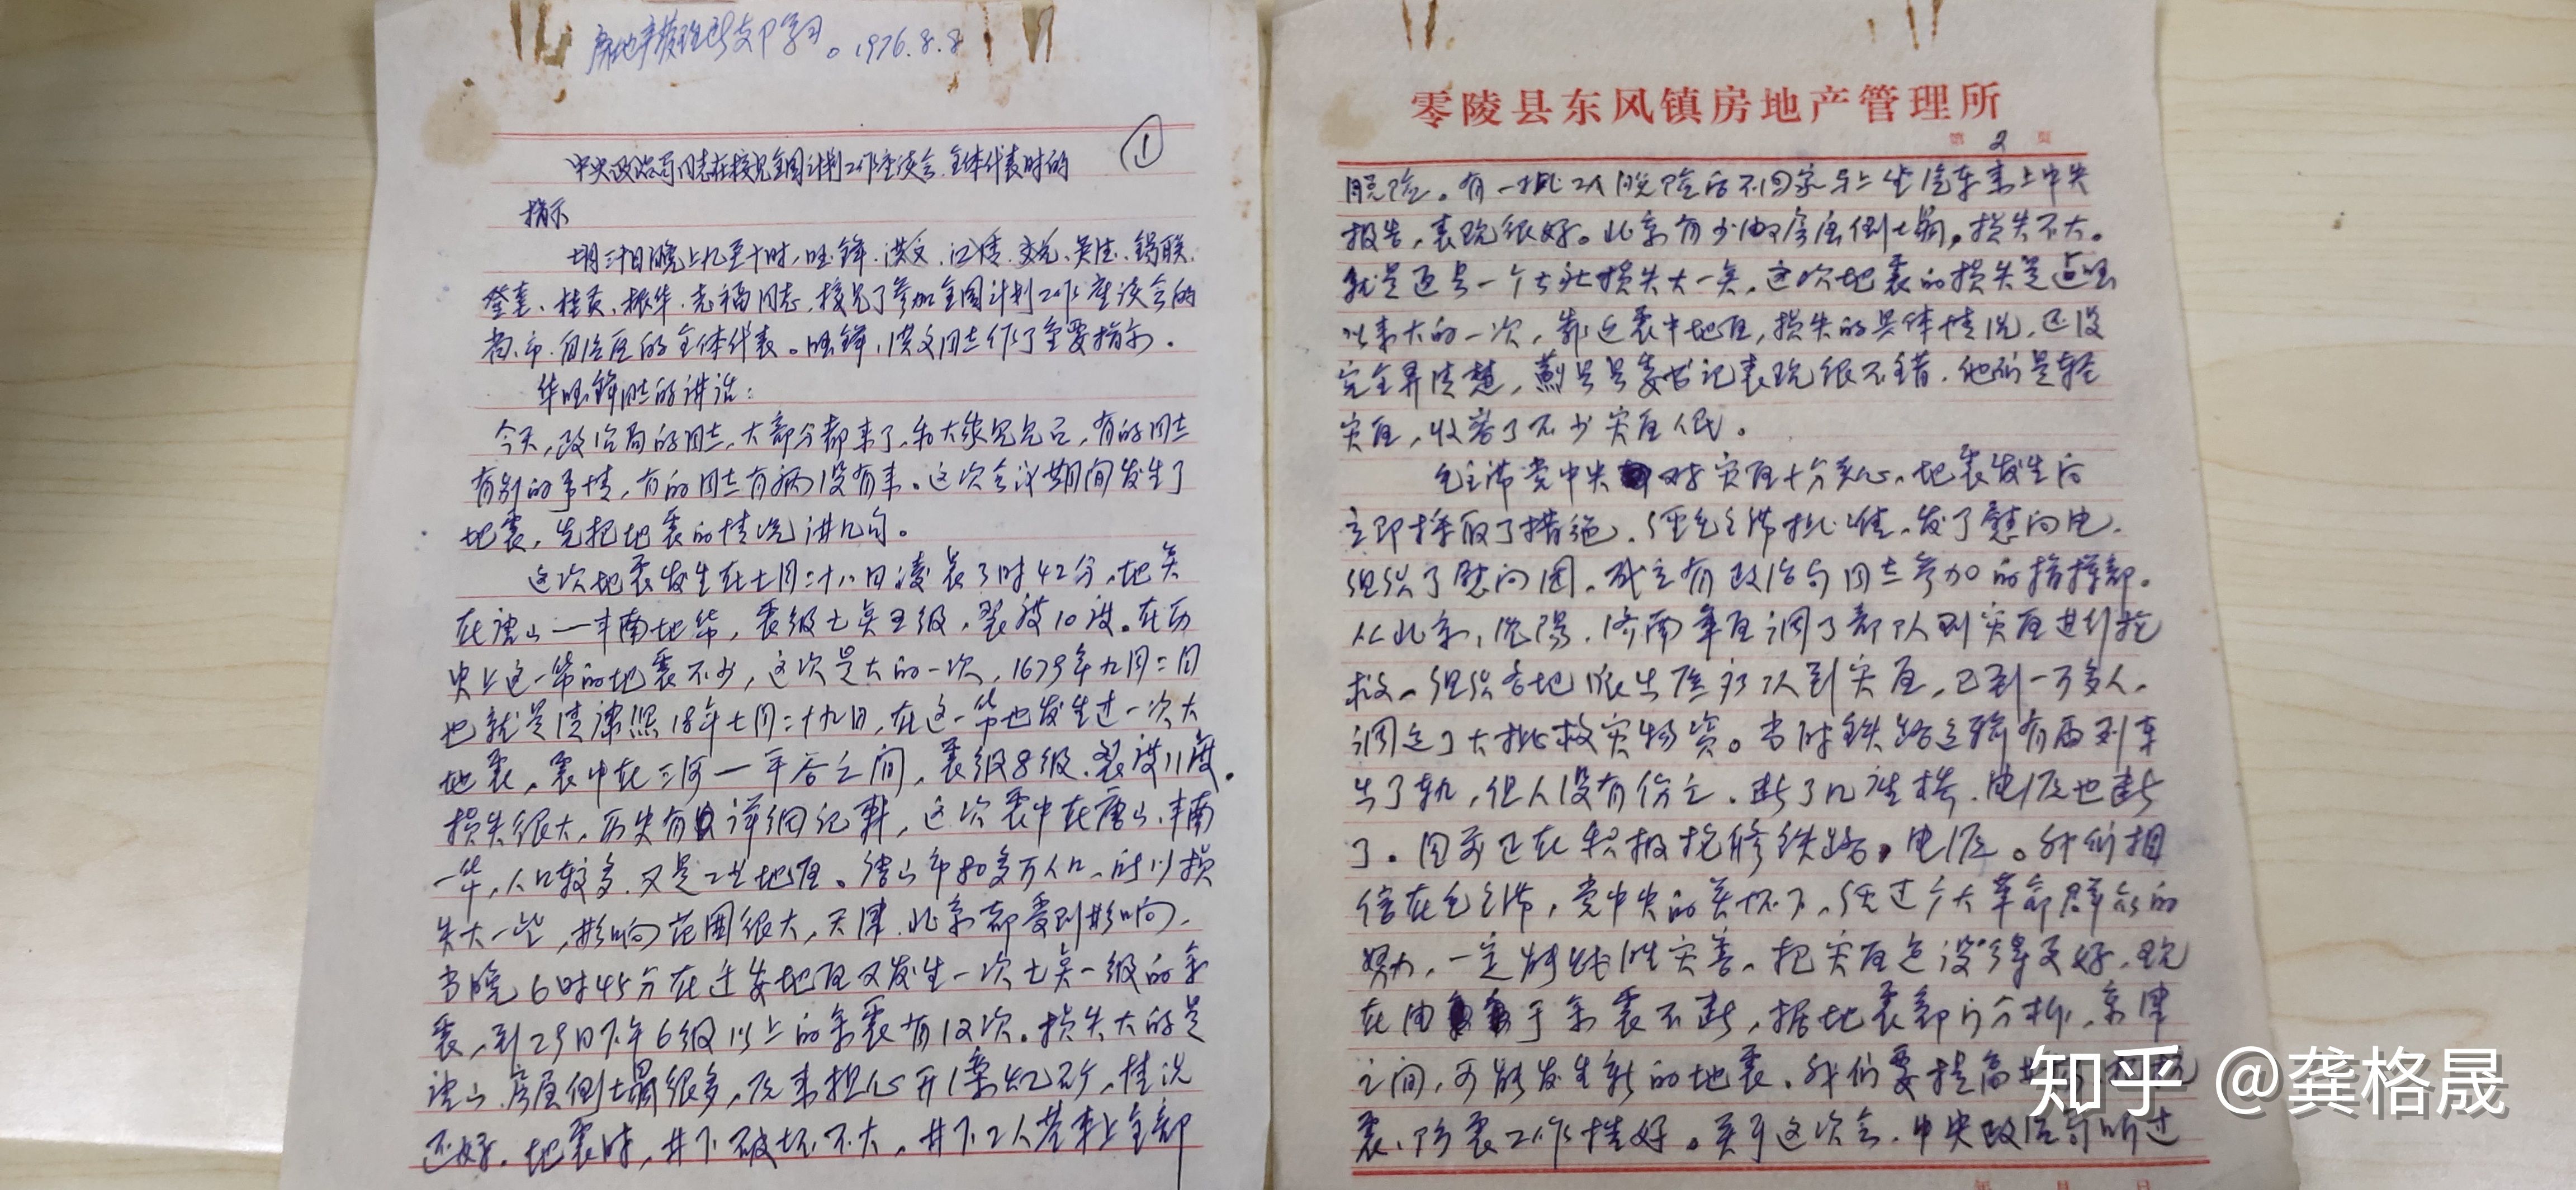 房地产管理所支部学习。1976.8.8
①
中央政治局同志在接见全国计划工作座谈会全体代表时的
指示
七月三十日晚上九至十时,国锋、洪文、江青、春桥、吴德、锡联、
登奎、桂贤、振华、先福同志,接见了参加全国计划工作座谈会的
省、市、自治区的全体代表。国锋、洪文同志作了重要指示。
华国锋同志的讲话:
今天,政治局的同志,大部分都来了,和大家见见面,有的同志
有别的事情,有的同志有病没有来。这次会议期间发生了
地震,先把地震的情况讲几句。
这次地震发生在七月二十八日凌晨3时42分,地点
在唐山一丰南地带,震级七点五级,裂度10度。在历
史上这一带的地震不少,这次是大的一次,1679年九月二日
也就是清康熙18年七月二十九日,在这一带也发生过一次大
地震,震中在三河一平谷之间,震级8级,裂度11度。
损失很大,历史有详细记载,这次震中在唐山、丰南
一带,人口较多,又是工业地区。唐山市80多万人口,所以损
失大一些,影响范围很大,天津、北京都受到影响,
当晚6时45分在迁安地区又发生一次七点一级的余
震,到29日下午6级以上的余震有12次。损失大的是
唐山,房屋倒塌很多,原来担心开滦煤矿,情况
还好。地震时,井下破坏不大,井下工人基本上全部
零陵县东风镇房地产管理所
第 2 页
脱险。有一批工人脱险后不回家马上坐汽车来上中央
报告,表现很好。北京有少数房屋倒塌,损失不大。
就是通县一个公社损失大一点,这次地震的损失是建国
以来大的一次,靠近震中地区,损失的具体情况,还没
完全弄清楚,蓟县县委书记表现很不错,他们是轻
灾区,收容了不少灾区人民。
毛主席党中央对灾区十分关心,地震发生后
立即采取了措施,经毛主席批准,发了慰问电,
组织了慰问团,成立有政治局同志参加的指挥部。
从北京、沈阳、济南军区调了部队到灾区进行抢
救,组织各地派出医疗队到灾区,已到一万多人,
调运了大批救灾物资。当时铁路运输有两列车
出了轨,但人没有伤亡,断了几座桥,电源也断
了。目前正在积极抢修铁路,电源。我们相
信在毛主席,党中央的关怀下,经过广大革命群众的
努力,一定能战胜灾害,把灾区建设得更好,现
在由于余震不断,据地震部门分析,京津
之间,可能发生新的地震,我们要提高
震、防震工作搞好。关于这次会,中央政治局听过
知乎 @龚格晟
年 月 日